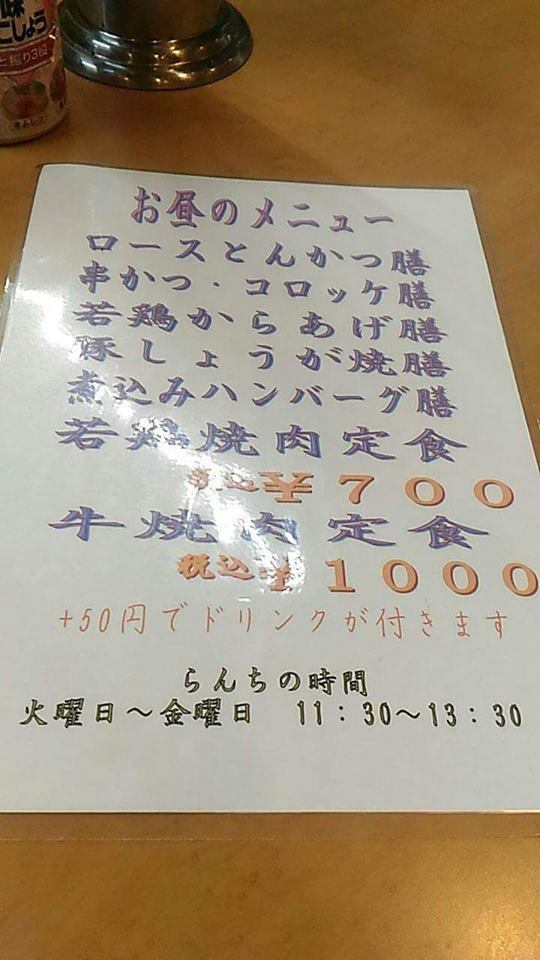 味
こしょう
お昼のメニュー
ロースとんかつ膳
串かつ・コロッケ膳
若鶏からあげ膳
豚しょうが焼膳
煮込みハンバーグ膳
若鶏焼肉定食
税込¥700
牛焼肉定食
税込¥1000
+50円でドリンクが付きます
らんちの時間
火曜日~金曜日 11:30~13:30